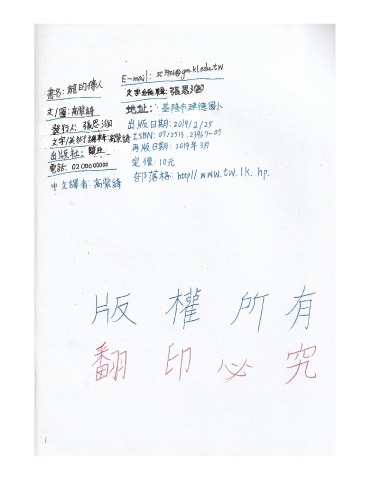 書名: 龍的傳人
文/圖: 高紫綺
發行人: 張恩溆
文字/美術編輯: 高紫綺
出版社:
電話: 02 0000000
中文譯者: 高紫綺
E-mail: @gm.kl.edu.tw
文字編輯: 張恩溆
地址: 基隆市建德國小
出版日期: 2019/2/25
ISBN: 07/2513..23967-05
再版日期: 2019年3月
定價: 10元
部落格: http// www.tw.lk.hp.
版權所有
翻印必究